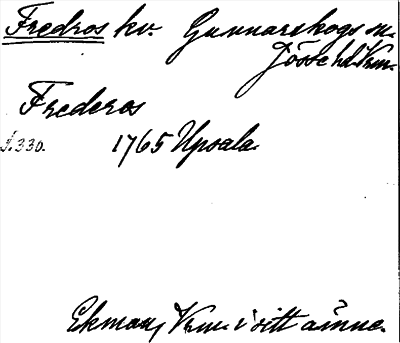 Fredros kv. Gunnarskogs sn.
Jösse hd. Vrm.
Frederos
s. 330. 1765 Upsala.
Ekman, Vrm. i sitt ämne.